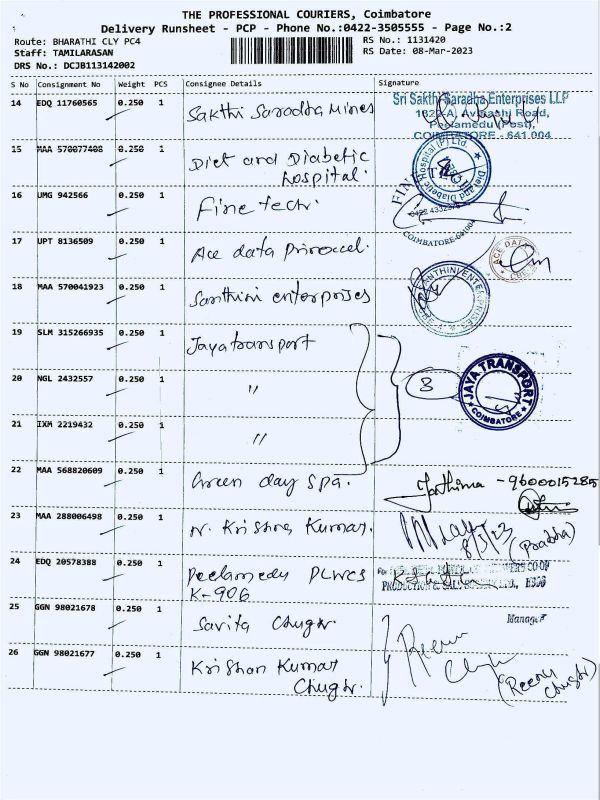 THE PROFESSIONAL COURIERS, Coimbatore
Delivery Runsheet - PCP - Phone No.:0422-3505555 - Page No.:2
Route: BHARATHI CLY PC4
RS No.: 1131420
Staff: TAMILARASAN
RS Date: 08-Mar-2023
DRS No.: DCJB113142002
S No Consignment No Weight PCS Consignee Details Signature
14 EDQ 11760565 0.250 1 Sakthi Saradha Mines
Sri Sakthi Saradha Enterprises LLP
Avinashi Road,
(Post),
COIMBATORE - 641 004
15 MAA 570077408 0.250 1 Diet and Diabetic
hospital.
Diet and Diabetic Hospital (P) Ltd.
16 UMG 942566 0.250 1 Fine tech.
FINE TE
COIMBATORE-641004
17 UPT 8136509 0.250 1 Ace data
ACE DATA
18 MAA 570041923 0.250 1 Santhini enterprises
ENTERPRISES
19 SLM 315266935 0.250 1 Jayatransport
20 NGL 2432557 0.250 1 "
3
JAYA TRANSPORT
COIMBATORE
21 IXM 2219432 0.250 1 "
22 MAA 568820609 0.250 1 Green day spa.
- 9600015285
23 MAA 288006498 0.250 1 N. Krishna Kumar.
8/3/23
(Prabha)
24 EDQ 20578388 0.250 1 Peelamedu PLWCS
K-906
For
CO-OP
PRODUCTION & SALE LTD.,
25 GGN 98021678 0.250 1 Savita Chugh.
Manager
26 GGN 98021677 0.250 1 Krishan Kumar
Chugh.
Reenu
Chugh
(Reenu
Chugh)